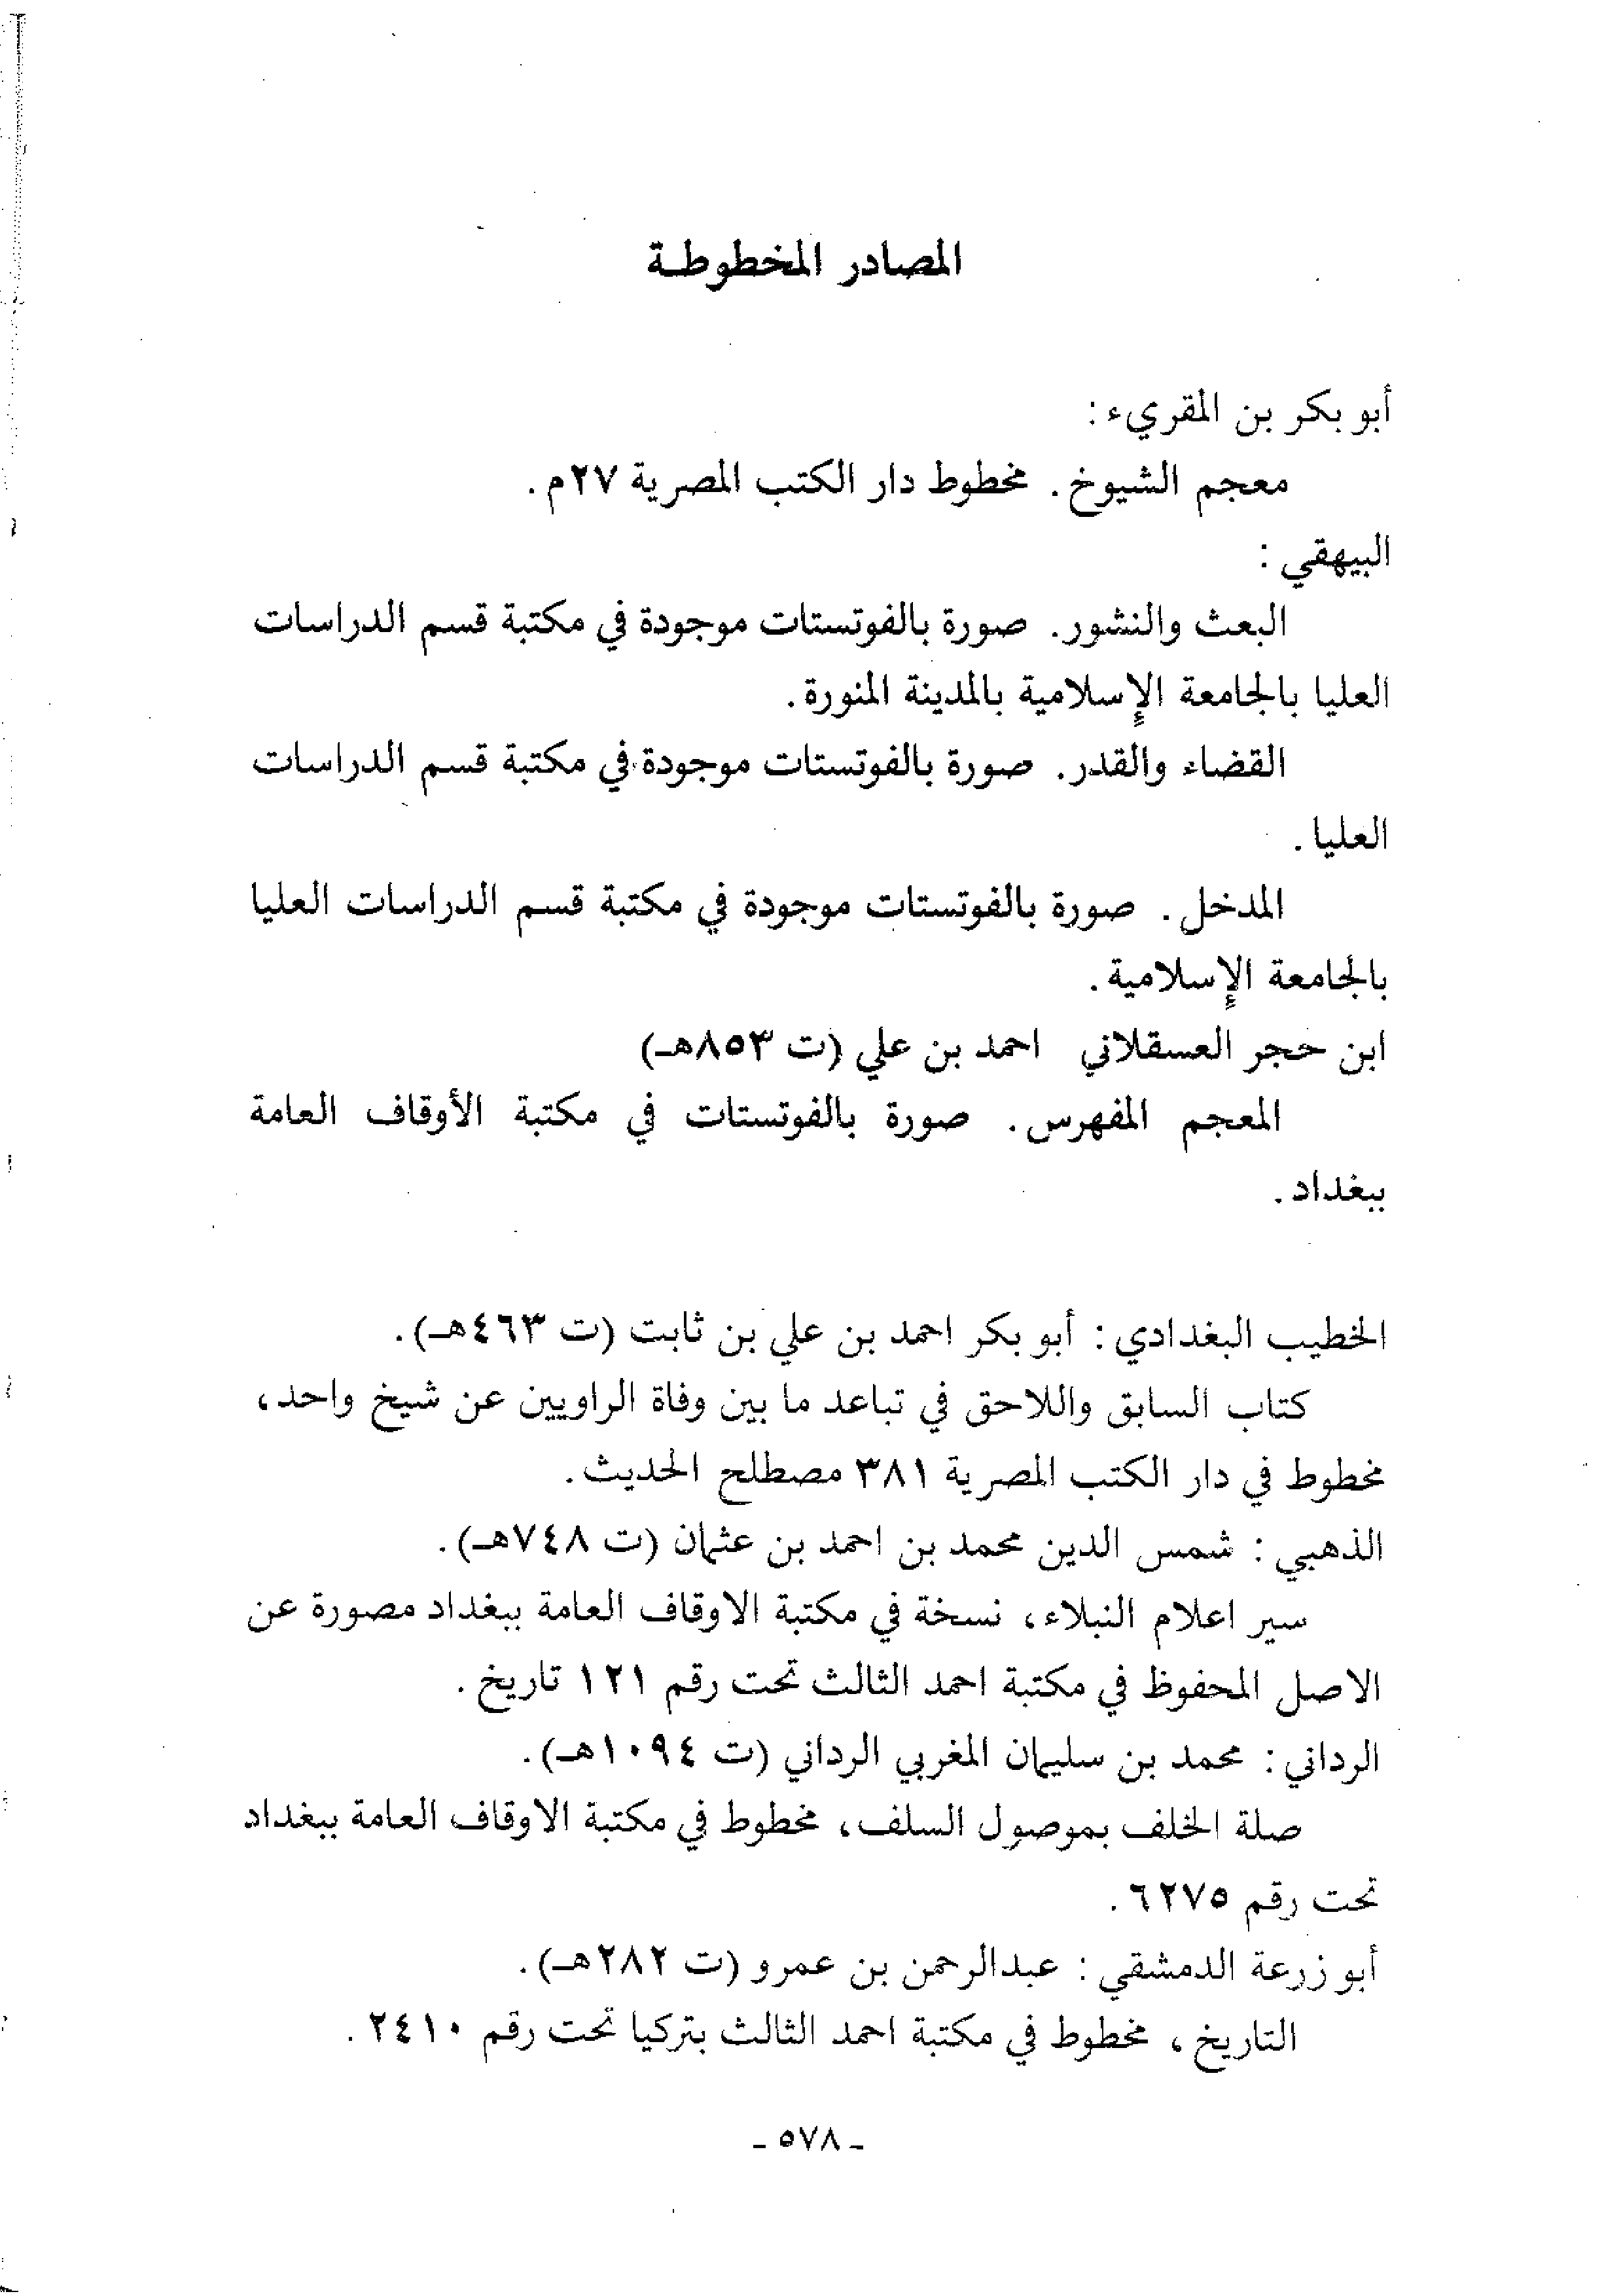 المصادر المخطوطـة
أبو بكر بن المقريء :
معجم الشيوخ. مخطوط دار الكتب المصرية ٢٧م.
البيهقي :
البعث والنشور. صورة بالفوتستات موجودة في مكتبة قسم الدراسات
العليا بالجامعة الإسلامية بالمدينة المنورة.
القضاء والقدر. صورة بالفوتستات موجودة في مكتبة قسم الدراسات
العليا.
المدخل. صورة بالفوتستات موجودة في مكتبة قسم الدراسات العليا
بالجامعة الإسلامية.
ابن حجر العسقلاني احمد بن علي (ت ٨٥٣هـ)
المعجم المفهرس. صورة بالفوتستات في مكتبة الأوقاف العامة
ببغداد.
الخطيب البغدادي : أبو بكر احمد بن علي بن ثابت (ت ٤٦٣هـ).
كتاب السابق واللاحق في تباعد ما بين وفاة الراويين عن شيخ واحد،
مخطوط في دار الكتب المصرية ٣٨١ مصطلح الحديث.
الذهبي : شمس الدين محمد بن احمد بن عثمان (ت ٧٤٨هـ).
سير اعلام النبلاء، نسخة في مكتبة الاوقاف العامة ببغداد مصورة عن
الاصل المحفوظ في مكتبة احمد الثالث تحت رقم ١٢١ تاريخ.
الرداني : محمد بن سليمان المغربي الرداني (ت ١٠٩٤هـ).
صلة الخلف بموصول السلف، مخطوط في مكتبة الاوقاف العامة ببغداد
تحت رقم ٦٢٧٥.
أبو زرعة الدمشقي : عبدالرحمن بن عمرو (ت ٢٨٢هـ).
التاريخ، مخطوط في مكتبة احمد الثالث بتركيا تحت رقم ٢٤١٠.
ـ ٥٧٨ ـ